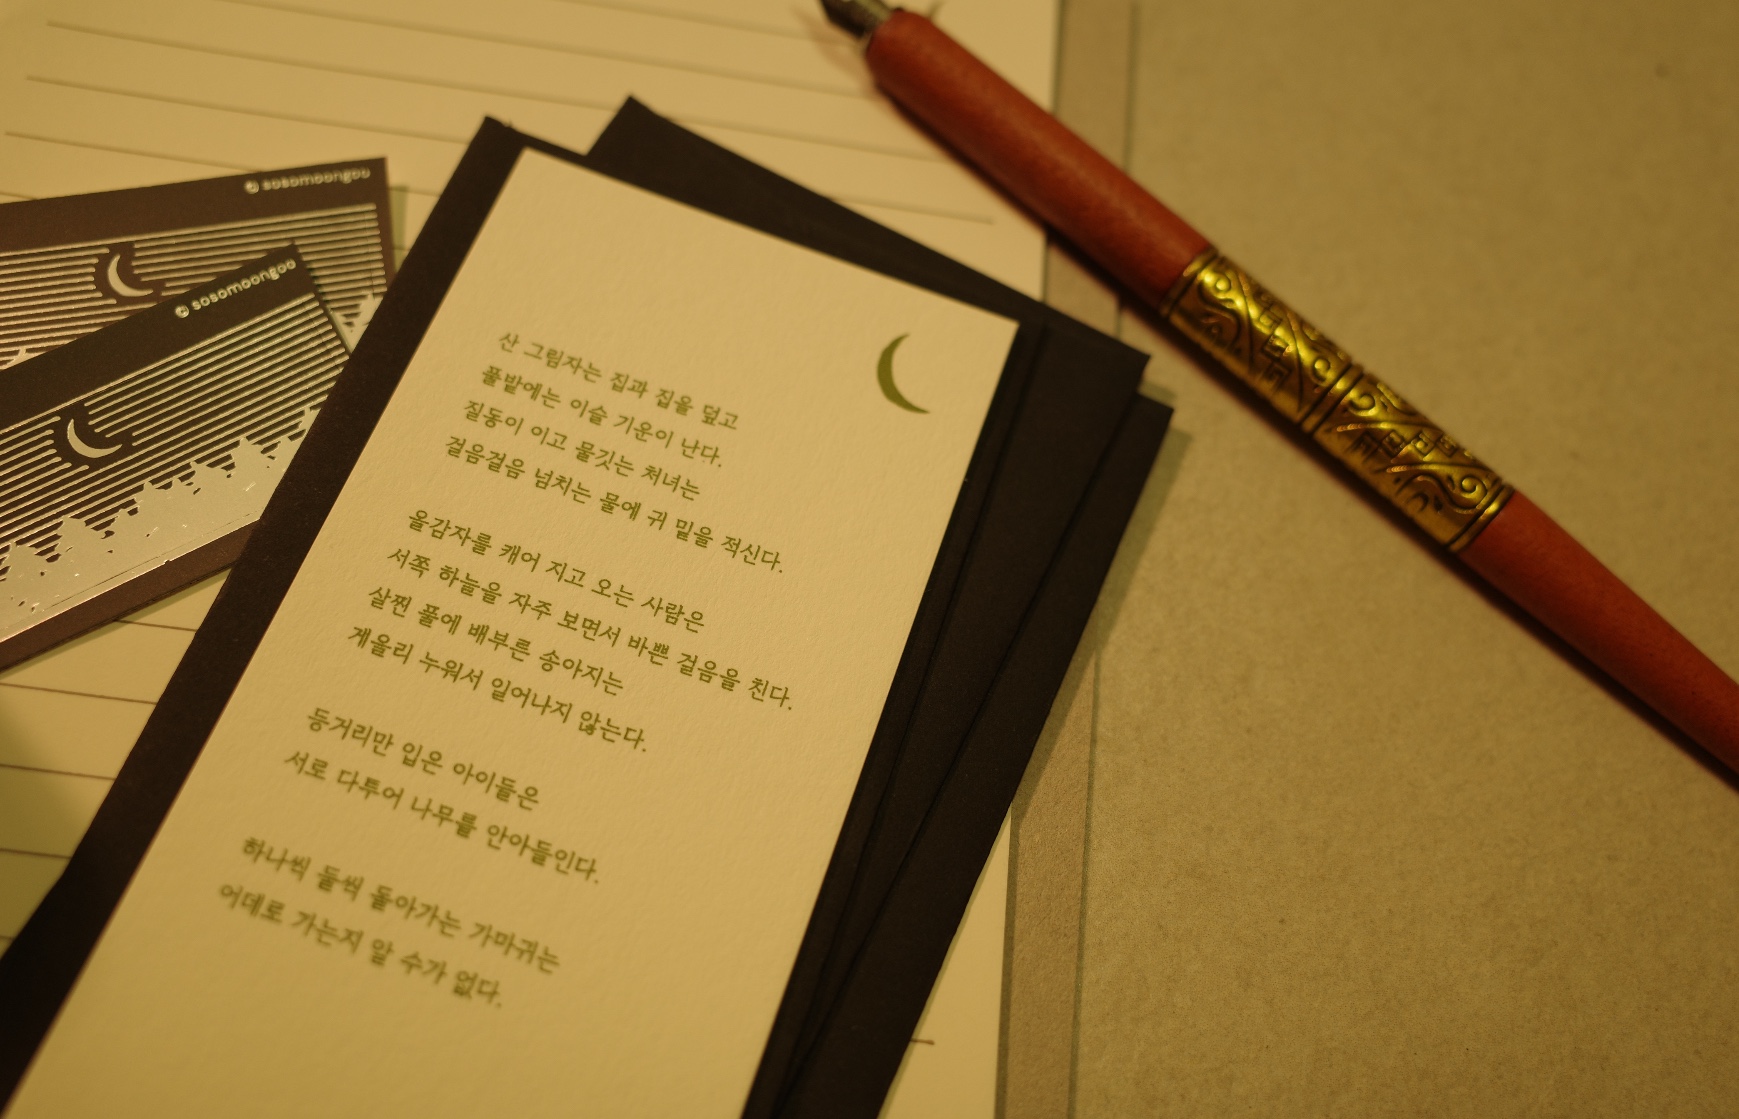 © sosomoongoo
© sosomoongoo
산 그림자는 집과 집을 덮고
풀밭에는 이슬 기운이 난다.
질동이 이고 물깃는 처녀는
걸음걸음 넘치는 물에 귀 밑을 적신다.
올감자를 캐어 지고 오는 사람은
서쪽 하늘을 자주 보면서 바쁜 걸음을 친다.
살찐 풀에 배부른 송아지는
게을리 누워서 일어나지 않는다.
등거리만 입은 아이들은
서로 다투어 나무를 안아들인다.
하나씩 둘씩 돌아가는 가마귀는
어데로 가는지 알 수가 없다.